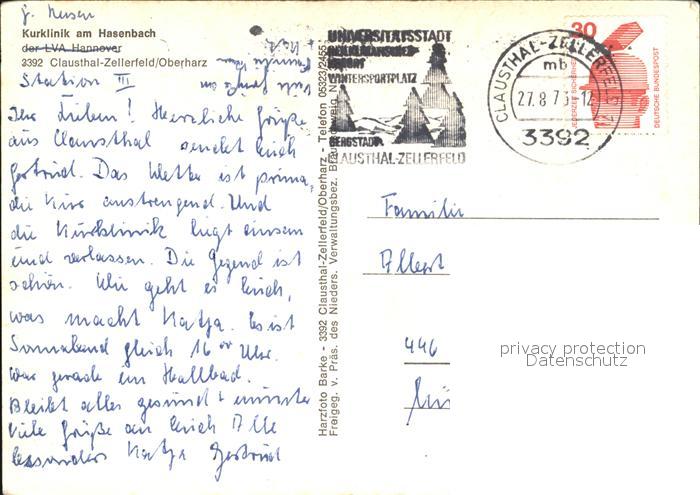 Kurklinik am Hasenbach
der LVA Hannover
3392 Clausthal-Zellerfeld/Oberharz
Station III
Ihr Lieben! Herzliche Grüße
aus Clausthal sendet Euch
Gertrud. Das Wetter ist prima,
die Kur anstrengend. Und
die Kurklinik liegt einsam
und verlassen. Die Gegend ist
schön. Wie geht es Euch,
was macht Katja. Es ist
Sonnabend gleich 16 00 Uhr.
War gerade im Hallbad.
Bleibt alles gesund + munter
Viele Grüße an Euch Alle
besonders Katja Gertrud
Harzfoto Barke - 3392 Clausthal-Zellerfeld/Oberharz - Telefon 05323/2455
Freigeg. v. Präs. des Nieders. Verwaltungsbez. Braunschweig
UNIVERSITÄTSSTADT
HEILKLIMATISCHER
KURORT
WINTERSPORTPLATZ
BERGSTADT
CLAUSTHAL-ZELLERFELD
CLAUSTHAL-ZELLERFELD
mb
27.8.7
12
3392
30
JEDERZEIT SICHERHEIT
DEUTSCHE BUNDESPOST
Familie
Albert
446
privacy protection
Datenschutz